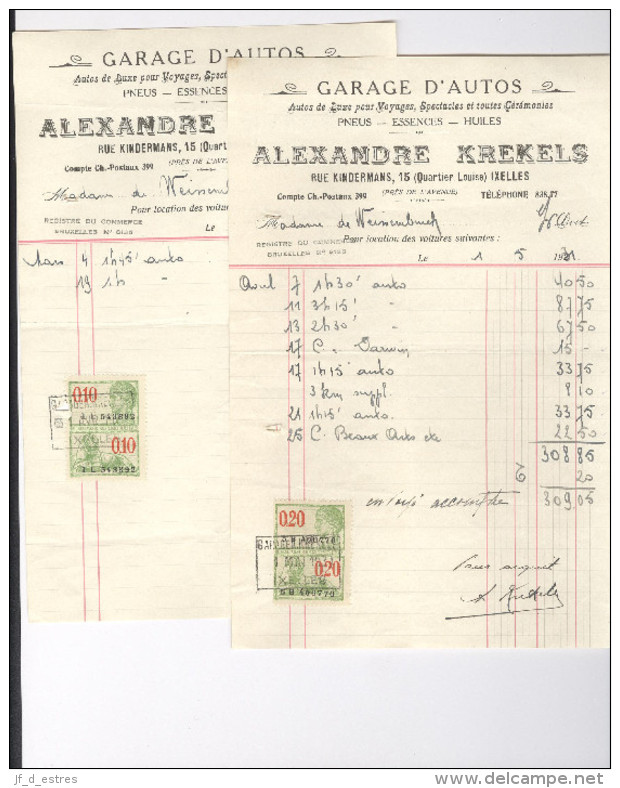 GARAGE D'AUTOS
Autos de Luxe pour Voyages, Spect
PNEUS — ESSENCES
ALEXANDRE
RUE KINDERMANS, 15 (Quart
Compte Ch.-Postaux 399 (PRÈS DE L'AVE
Madame de Weissenb
Pour location des voitur
REGISTRE DU COMMERCE
BRUXELLES N° 5135 Le
Mars 4 1h45' auto
19 1h "
0.10
1 L 549892
IXELLES
0.10
1 L 549892
GARAGE D'AUTOS
Autos de Luxe pour Voyages, Spectacles et toutes Cérémonies
PNEUS — ESSENCES — HUILES
ALEXANDRE KREKELS
RUE KINDERMANS, 15 (Quartier Louise) IXELLES
Compte Ch.-Postaux 399 (PRÈS DE L'AVENUE) TÉLÉPHONE 838,77
Madame de Weissenbruck
Pour location des voitures suivantes :
REGISTRE DU COMMERCE
BRUXELLES N° 5135 Le 1 5 1931
Avril 7 1h30' auto 40 50
11 3h15' " 87 75
13 2h30' " 67 50
17 C. Darwin 15 -
17 1h15' auto 33 75
3 km suppl. 8 10
21 1h15' auto. 33 75
25 C. Beaux Arts etc 22 50
308 85
20
309,05
0.20
5 H 400770
1 MAI
IXELLES
0.20
5 H 400770
Pour acquit
A Krekels
jf_d_estres
www.delcampe.net